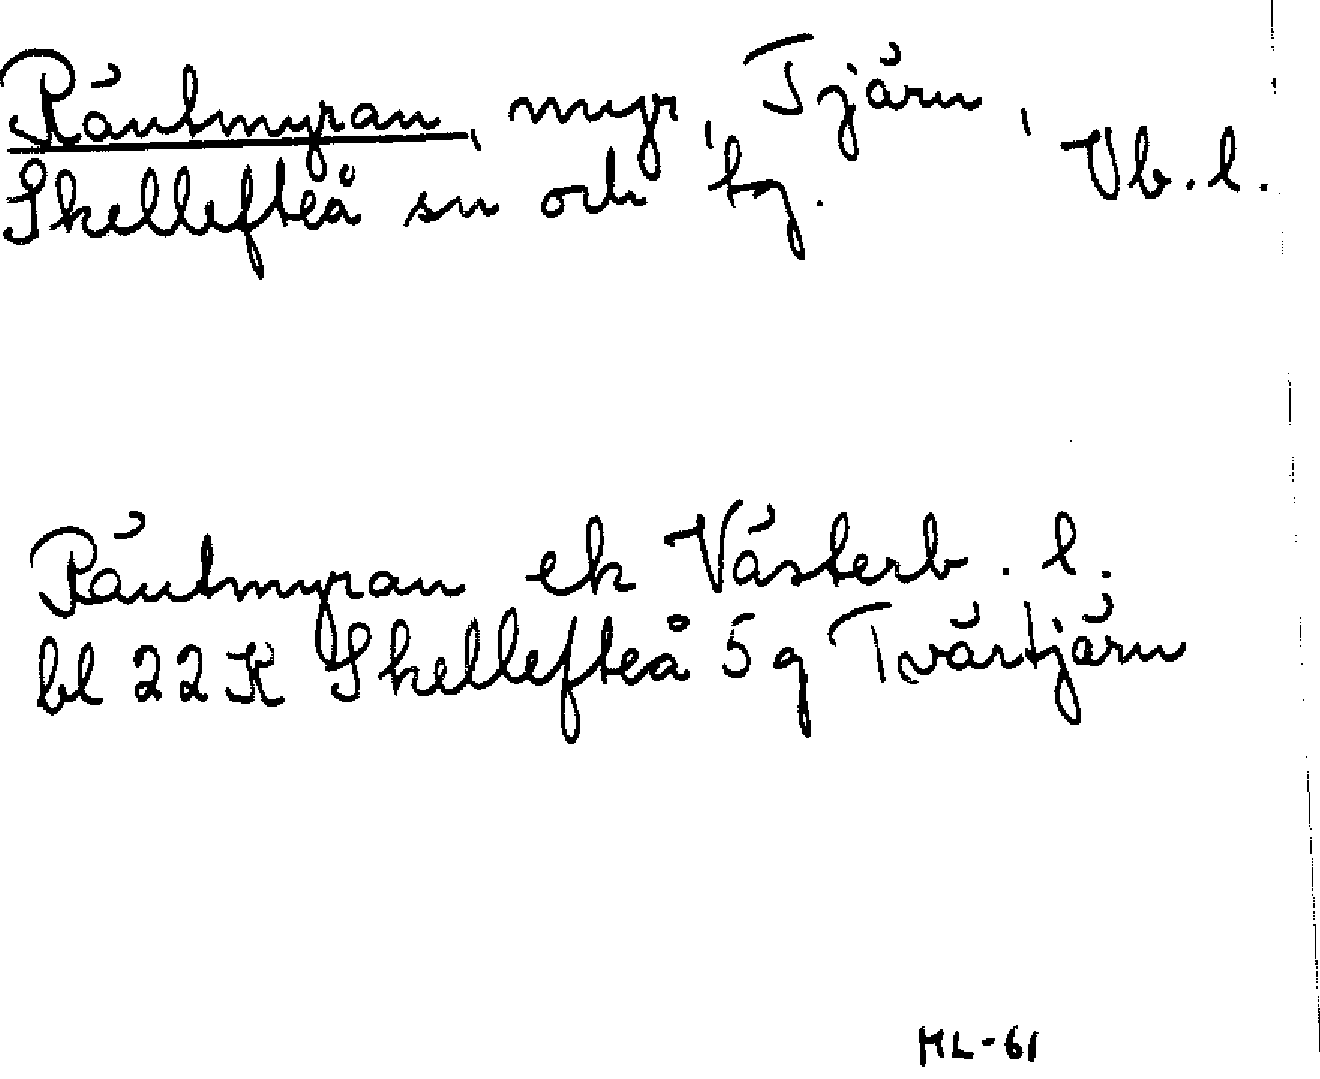 Räutmyran, myr, Tjärn,
Skellefteå sn och tg. Vb.l.
Räutmyran ek Västerb. l.
bl 22K Skellefteå 5g Tvärtjärn
ML-61